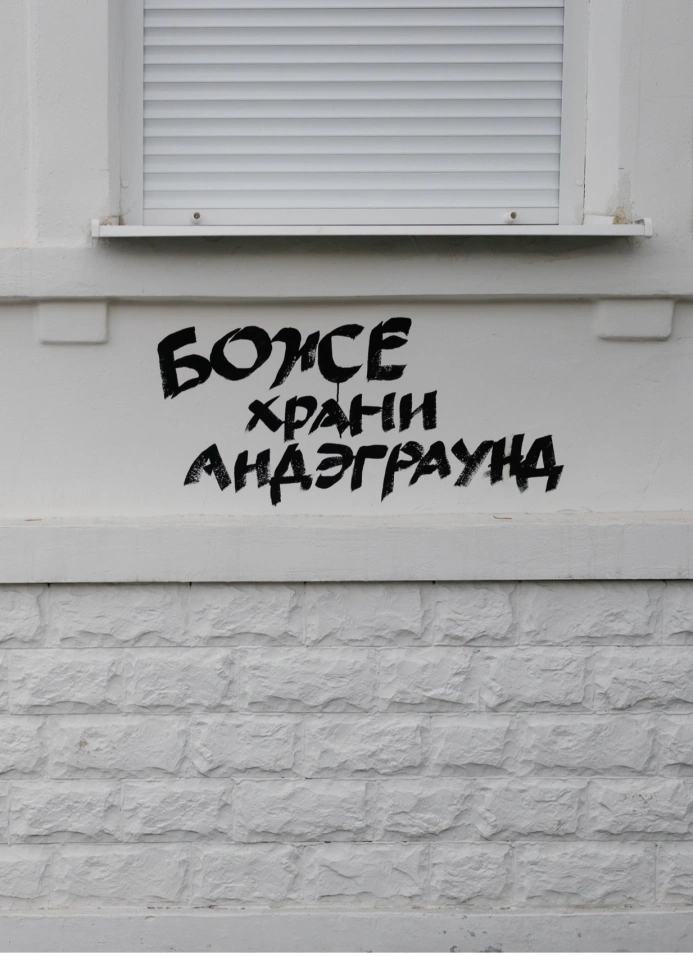 БОЖЕ
ХРАНИ
АНДЭГРАУНД